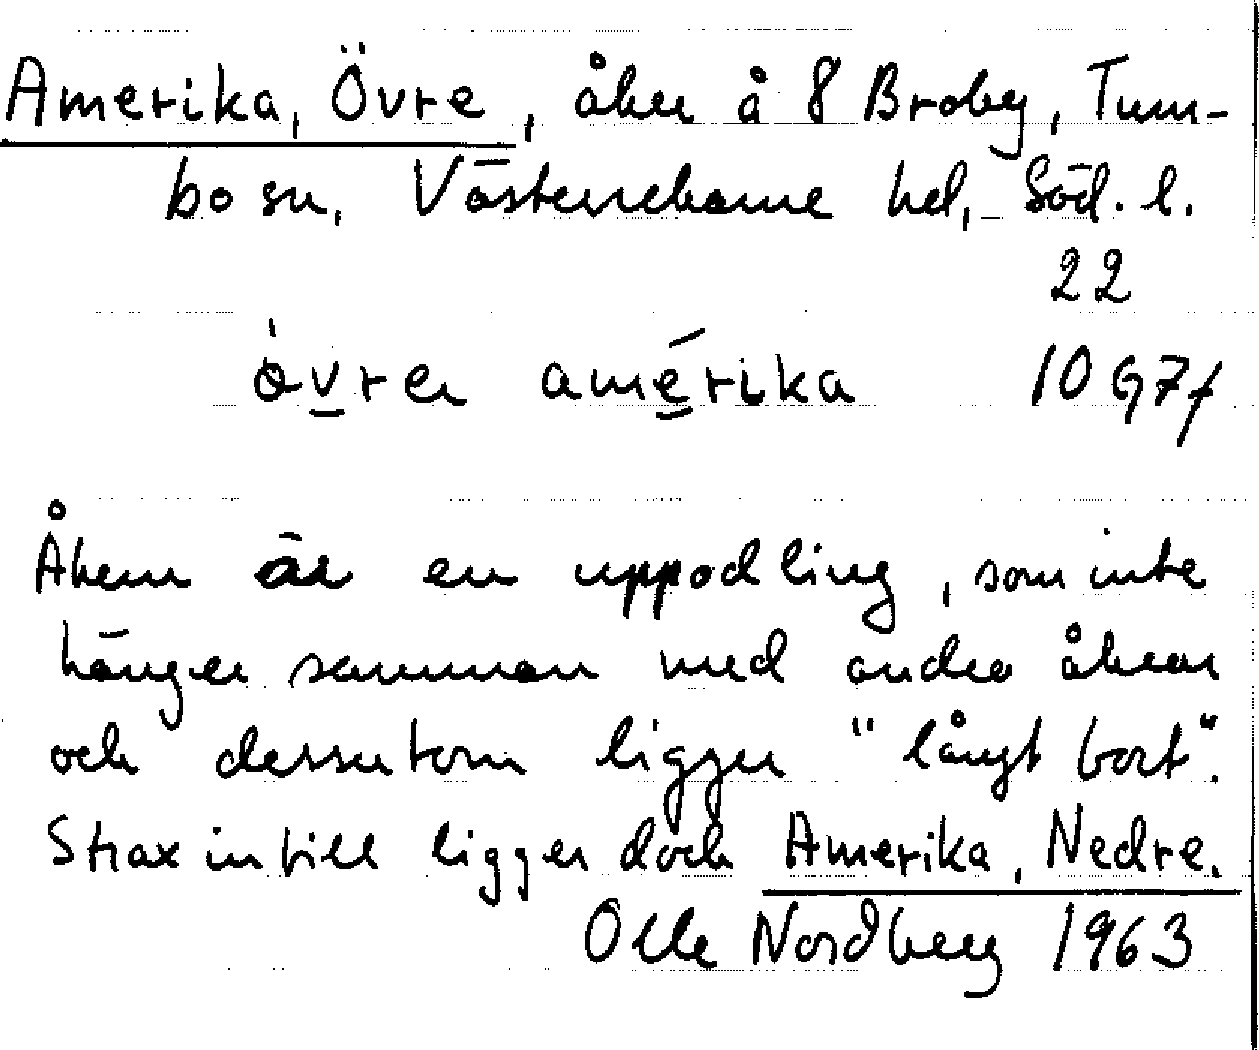 Amerika, Övre, åker å 8 Broby, Tum-
bo sn, Västerrekarne hd, Söd. l.
22
övrer amérika 10 G7f
Åkern är en uppodling, som inte
hänger samman med andra åkrar
och dessutom ligger "långt bort".
Strax intill ligger dock Amerika, Nedre.
Olle Nordberg 1963